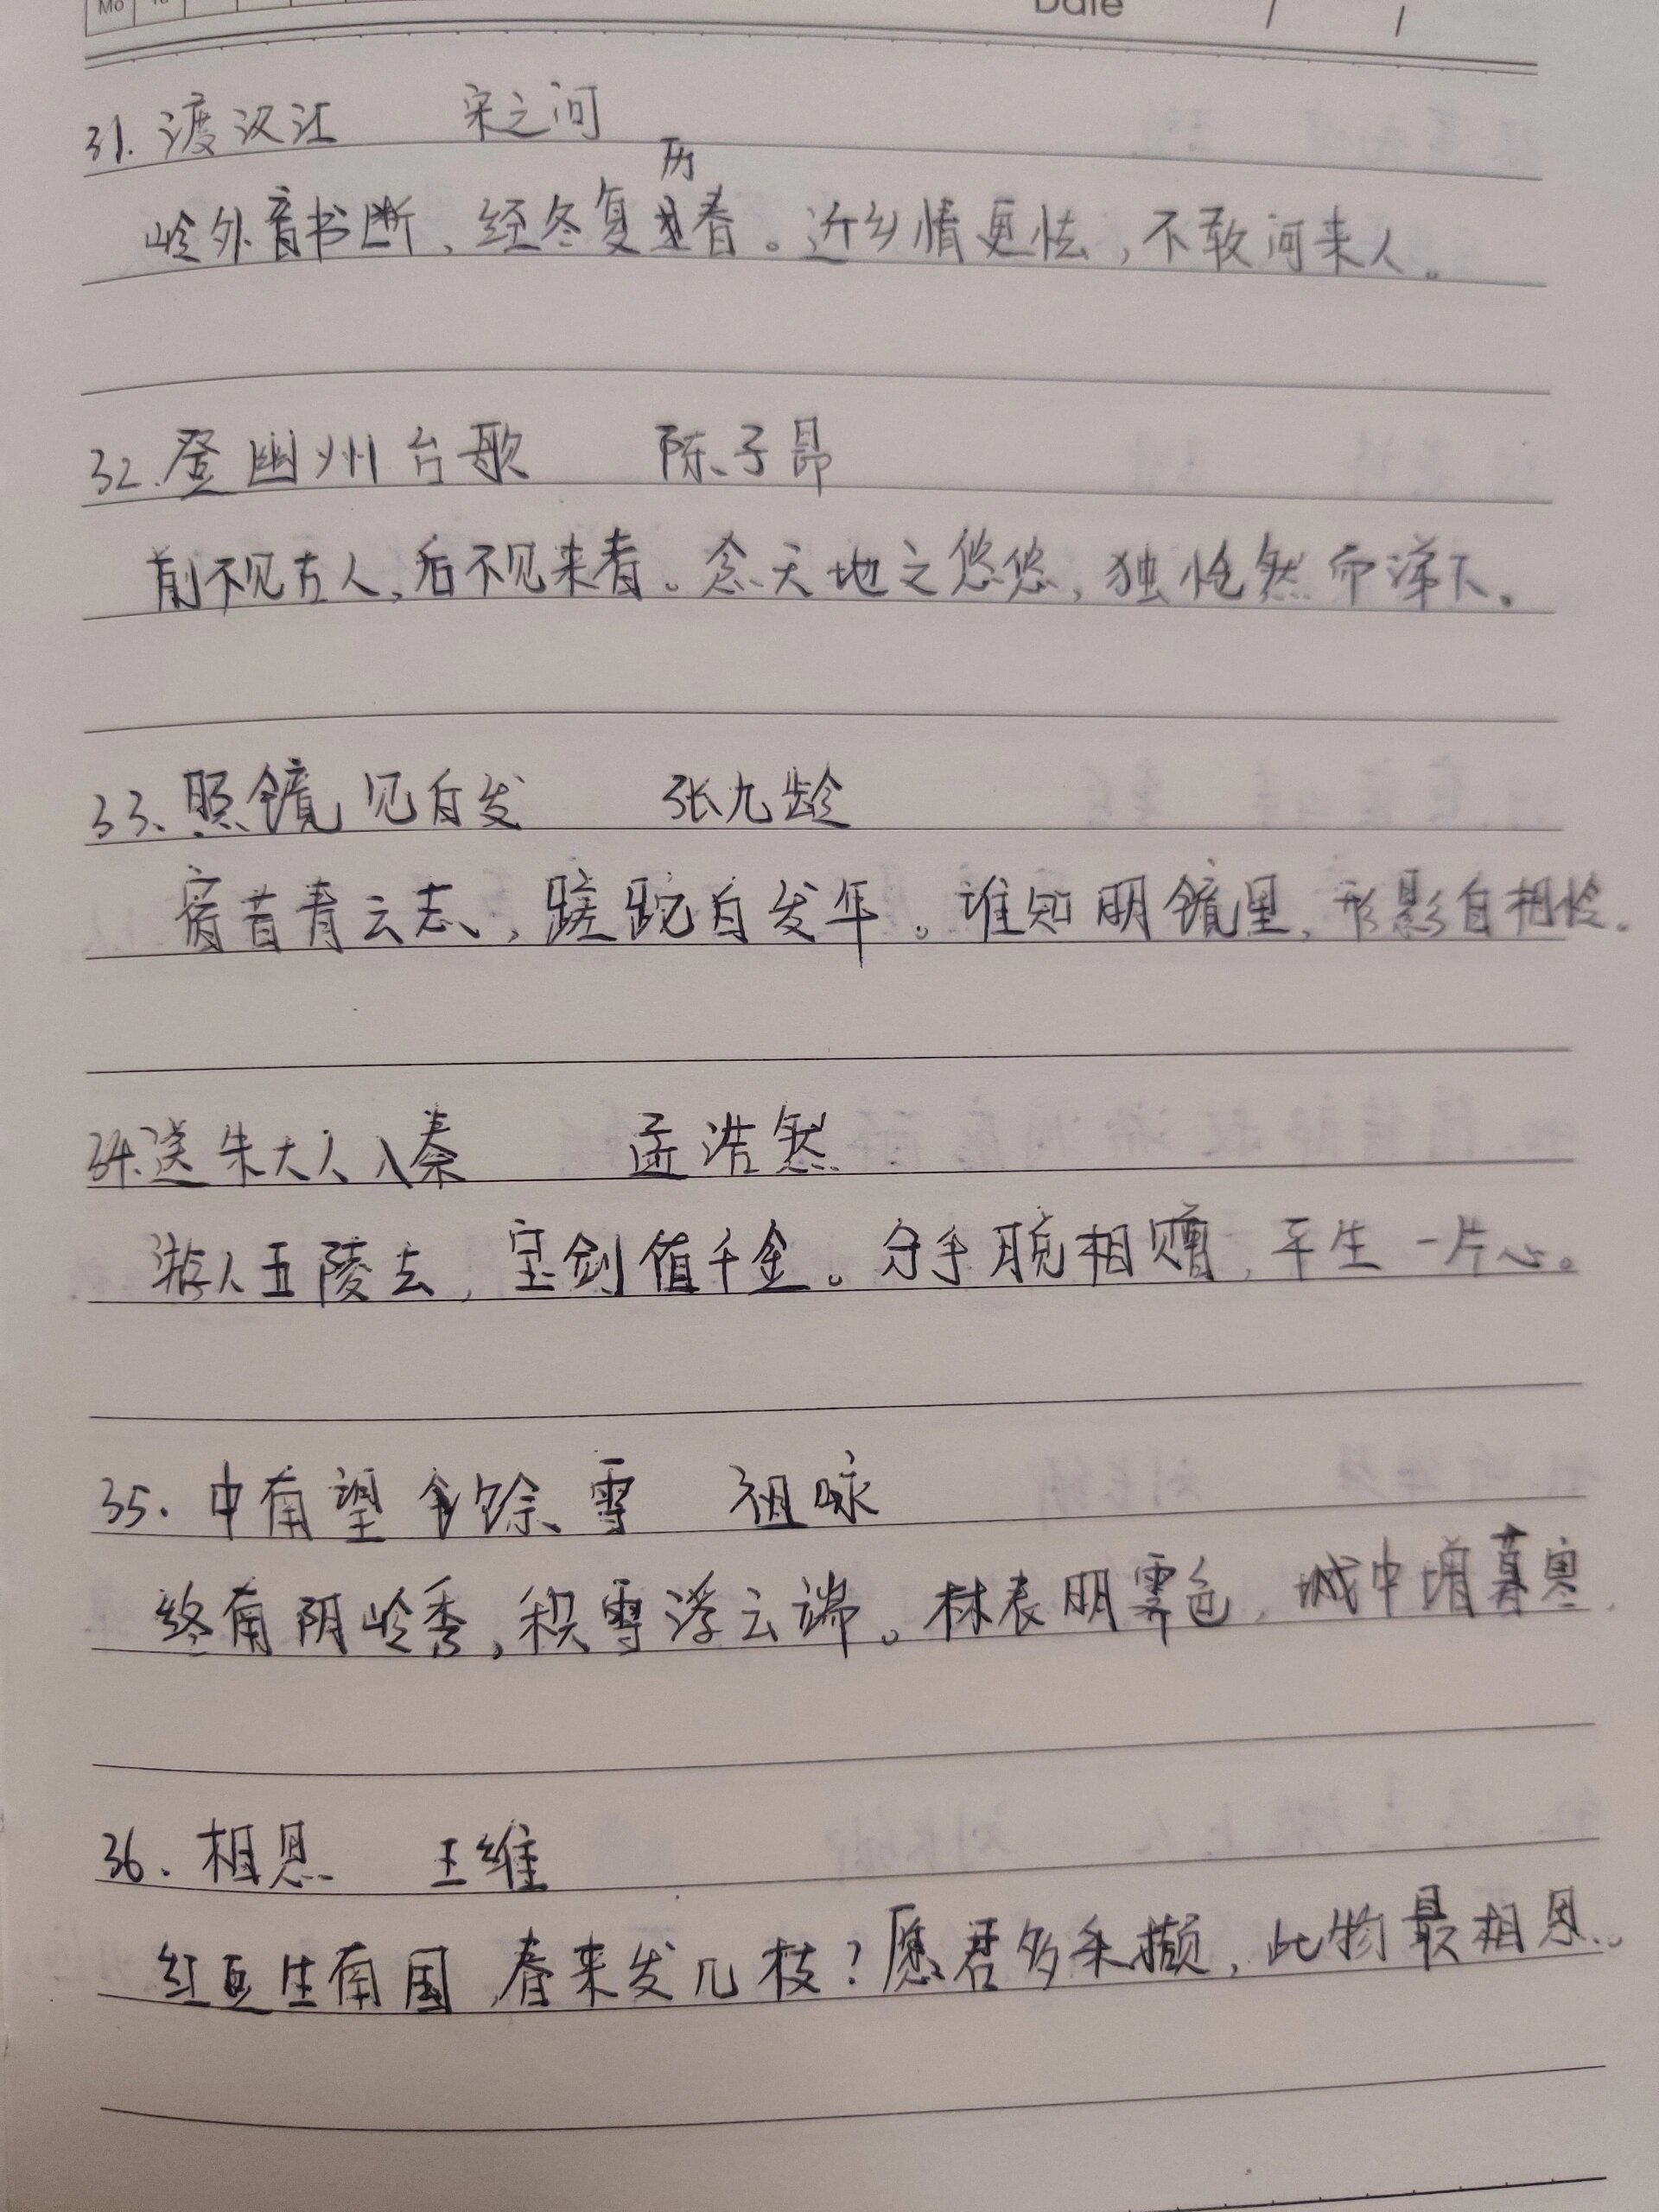 Mo Tu Date / /
31. 渡汉江 宋之问
历
岭外音书断，经冬复春。近乡情更怯，不敢问来人。
32. 登幽州台歌 陈子昂
前不见古人，后不见来者。念天地之悠悠，独怆然而涕下。
33、照镜见白发 张九龄
宿昔青云志，蹉跎白发年。谁知明镜里，形影自相怜。
34.送朱大人入秦 孟浩然
游人五陵去，宝剑值千金。分手脱相赠，平生一片心。
35. 中南望余雪 祖咏
终南阴岭秀，积雪浮云端。林表明霁色，城中增暮寒.
36. 相思 王维
红豆生南国，春来发几枝？愿君多采撷，此物最相思。